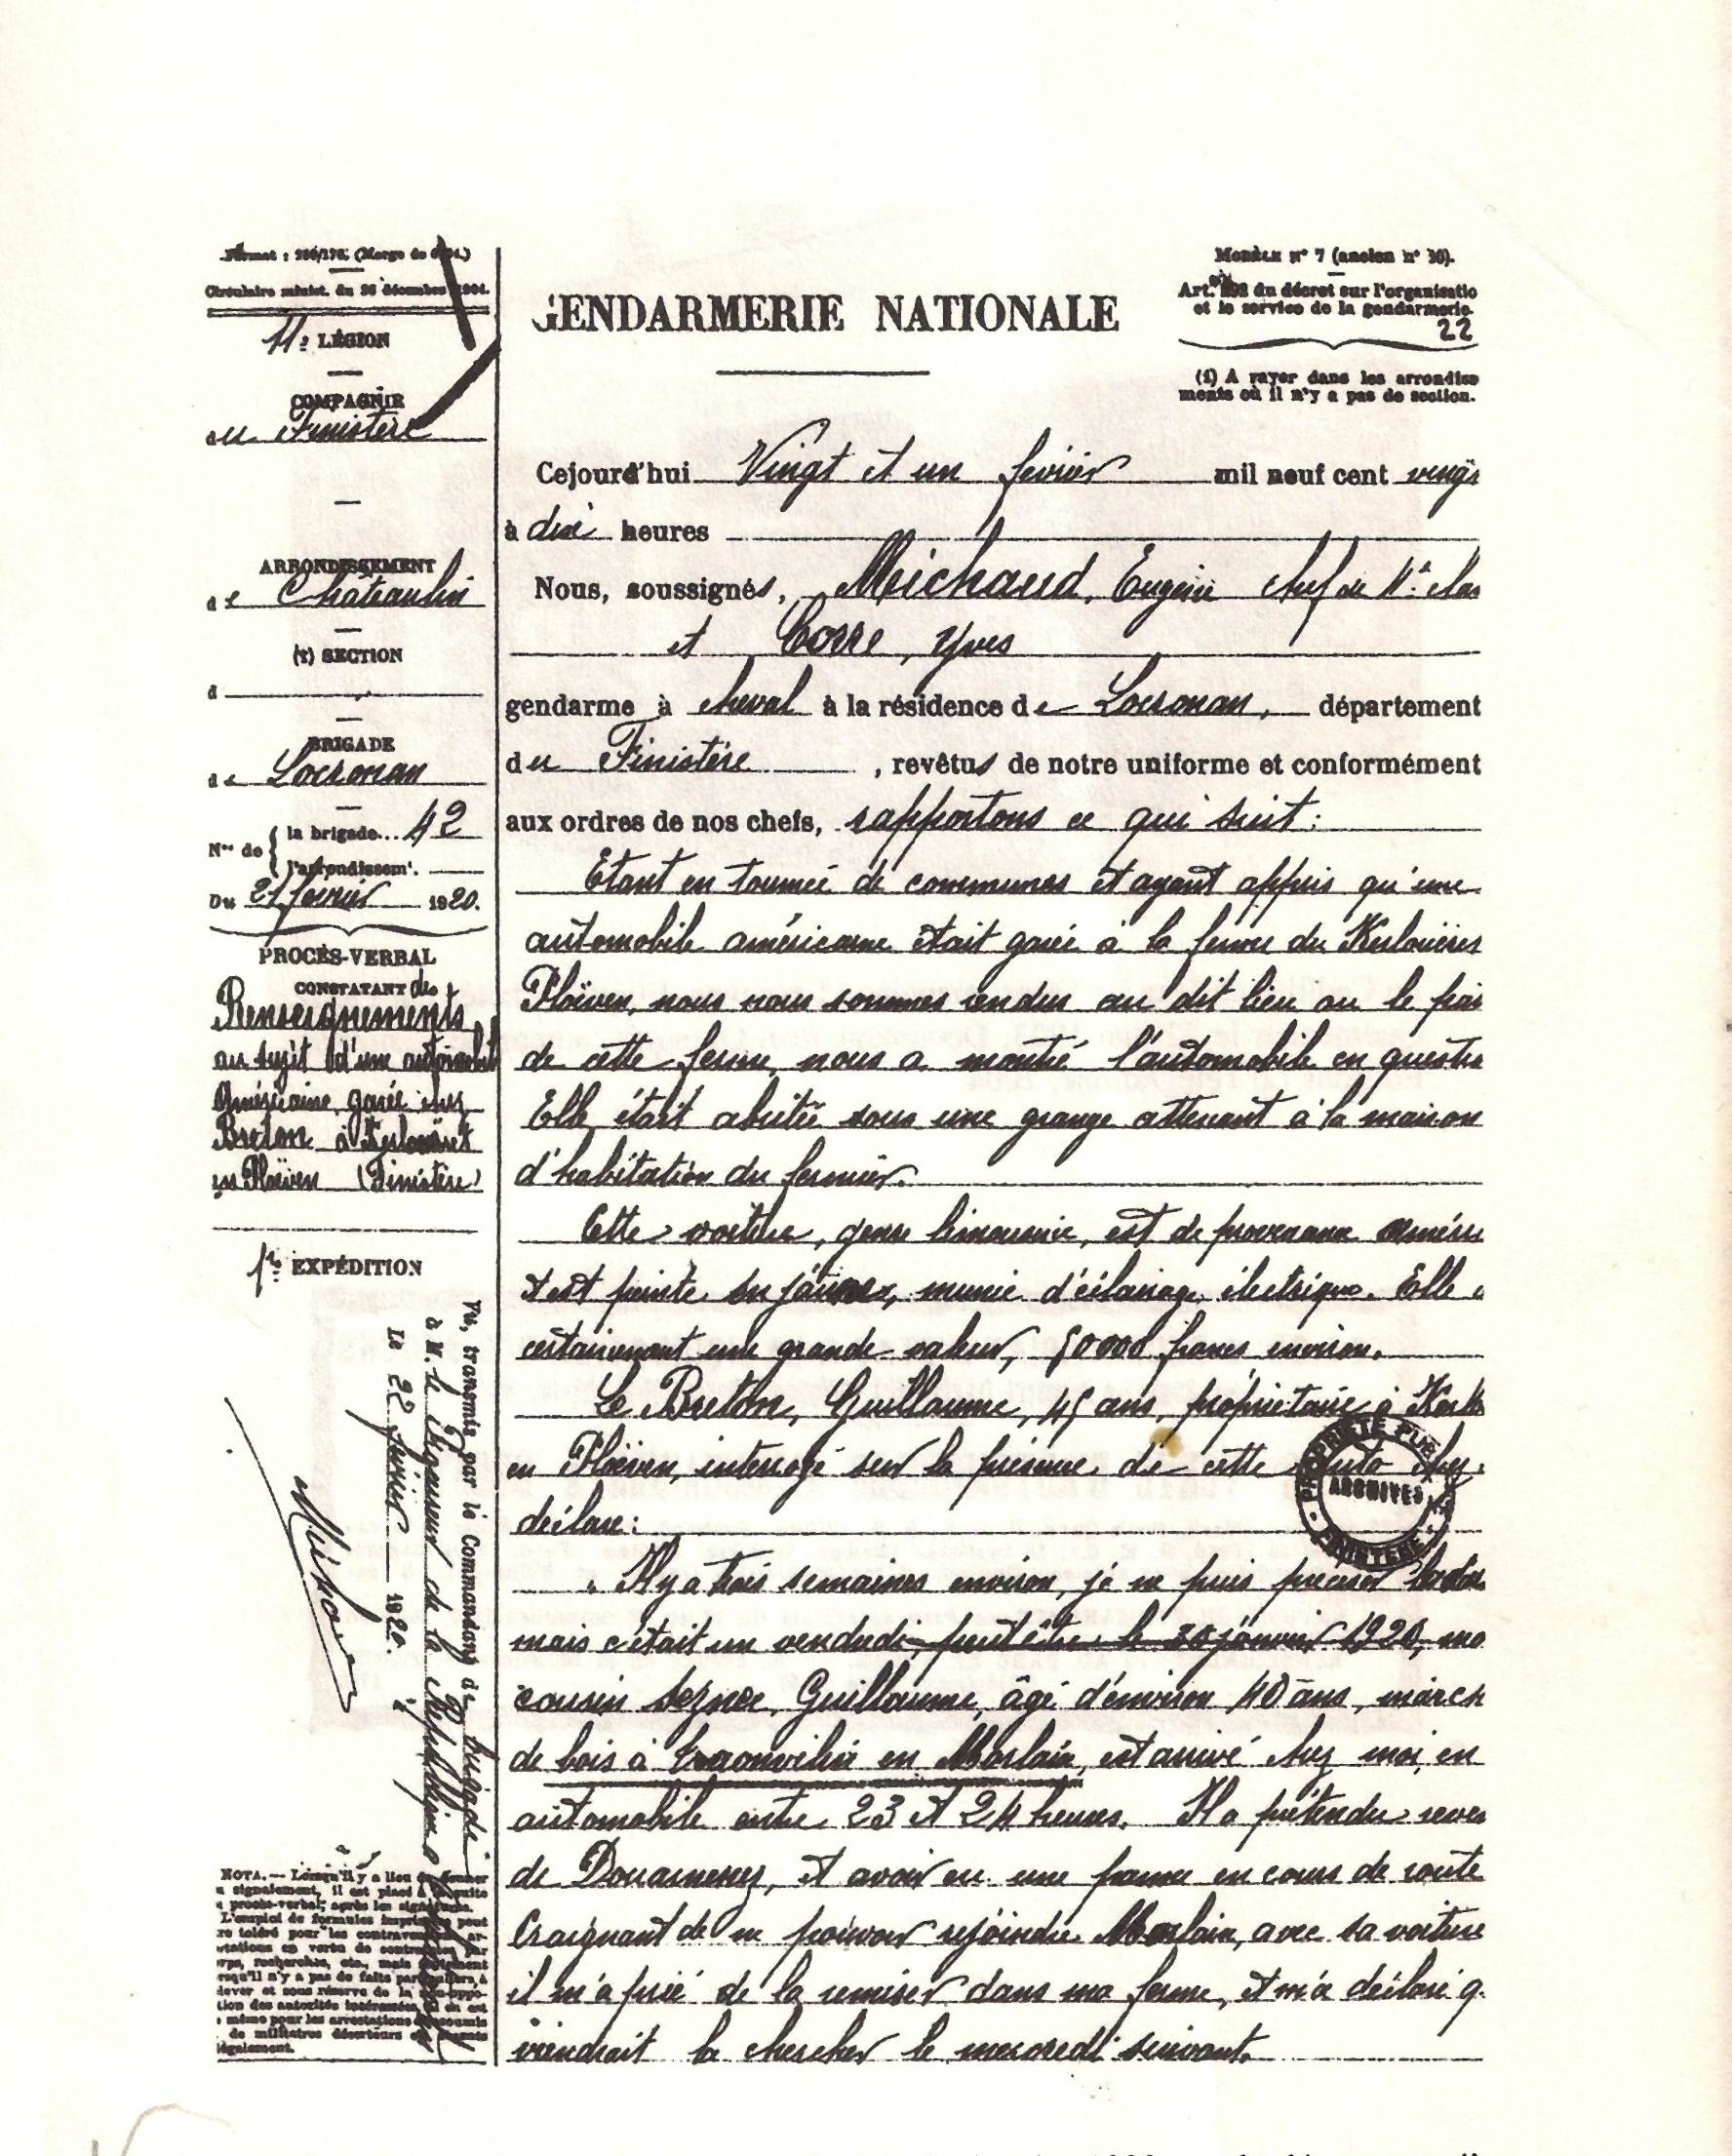 Format : 286/176. (Marge de
Circulaire minist. du 26 décembre 1904.
11e LÉGION
COMPAGNIE
du Finistère
ARRONDISSEMENT
de Châteaulin
(1) SECTION
d
BRIGADE
de Locronan
Nos de { la brigade... 42
l'arrondissemt.
Du 21 février 1920.
PROCÈS-VERBAL
CONSTATANT des
Renseignements
au sujet d'une automobile
Américaine garée chez
Breton à
en Ploëven (Finistère)
1re EXPÉDITION
Vu, transmis par le Commandant de brigade
à M. le Procureur de la République à
Le 22 février 1920.
NOTA. — Lorsqu'il y a lieu de donner
signalement, il est placé à la suite
procès-verbal, après les signatures.
L'emploi de formules imprimées peut
re toléré pour les contraventions, ar-
restations en vertu de contraintes par
corps, recherches, etc., mais seulement
lorsqu'il n'y a pas de faits particuliers à
lever et sous réserve de la non-oppo-
tion des autorités intéressées. Il en est
même pour les arrestations
de militaires déserteurs
légalement.
GENDARMERIE NATIONALE
MODÈLE N° 7 (ancien n° 10).
Art. du décret sur l'organisatio
et le service de la gendarmerie.
22
(1) A rayer dans les arrondisse
ments où il n'y a pas de section.
Cejourd'hui Vingt et un février mil neuf cent vingt
à dix heures
Nous, soussignés, Michaud, Eugène chef de 1e clas
et Corre, Yves
gendarme à cheval à la résidence de Locronan, département
du Finistère, revêtus de notre uniforme et conformément
aux ordres de nos chefs, rapportons ce qui suit :
Etant en tournée de communes et ayant appris qu'une
automobile américaine était garée à la ferme de
Ploëven, nous nous sommes rendus au dit lieu ou le
de cette ferme, nous a montré l'automobile en questio
Elle était abritée sous une grange attenant à la maison
d'habitation du fermier.
Cette voiture, genre limousine, est de provenance améri
et est peinte en jaune, munie d'éclairage électrique. Elle a
certainement une grande valeur, 50000 francs environ.
Le Breton, Guillaume, 45 ans, propriétaire à
en Ploëven, interrogé sur la présence de cette auto chez
déclare :
« Il y a trois semaines environ, je ne puis préciser la date
mais c'était un vendredi, peut être le 30 janvier 1920, mo
cousin Seznec, Guillaume, âgé d'environ 40 ans, march
de bois à Traonvilin en Morlaix, est arrivé chez moi, en
automobile entre 23 et 24 heures. Il a prétendu reven
de Douarnenez, et avoir eu une panne en cours de route
Craignant de ne pouvoir rejoindre Morlaix, avec sa voiture
il m'a prié de la remiser dans ma ferme, et m'a déclaré q.
viendrait la chercher le mercredi suivant.
PROPRIÉTÉ PUB
ARCHIVES
FINISTÈRE